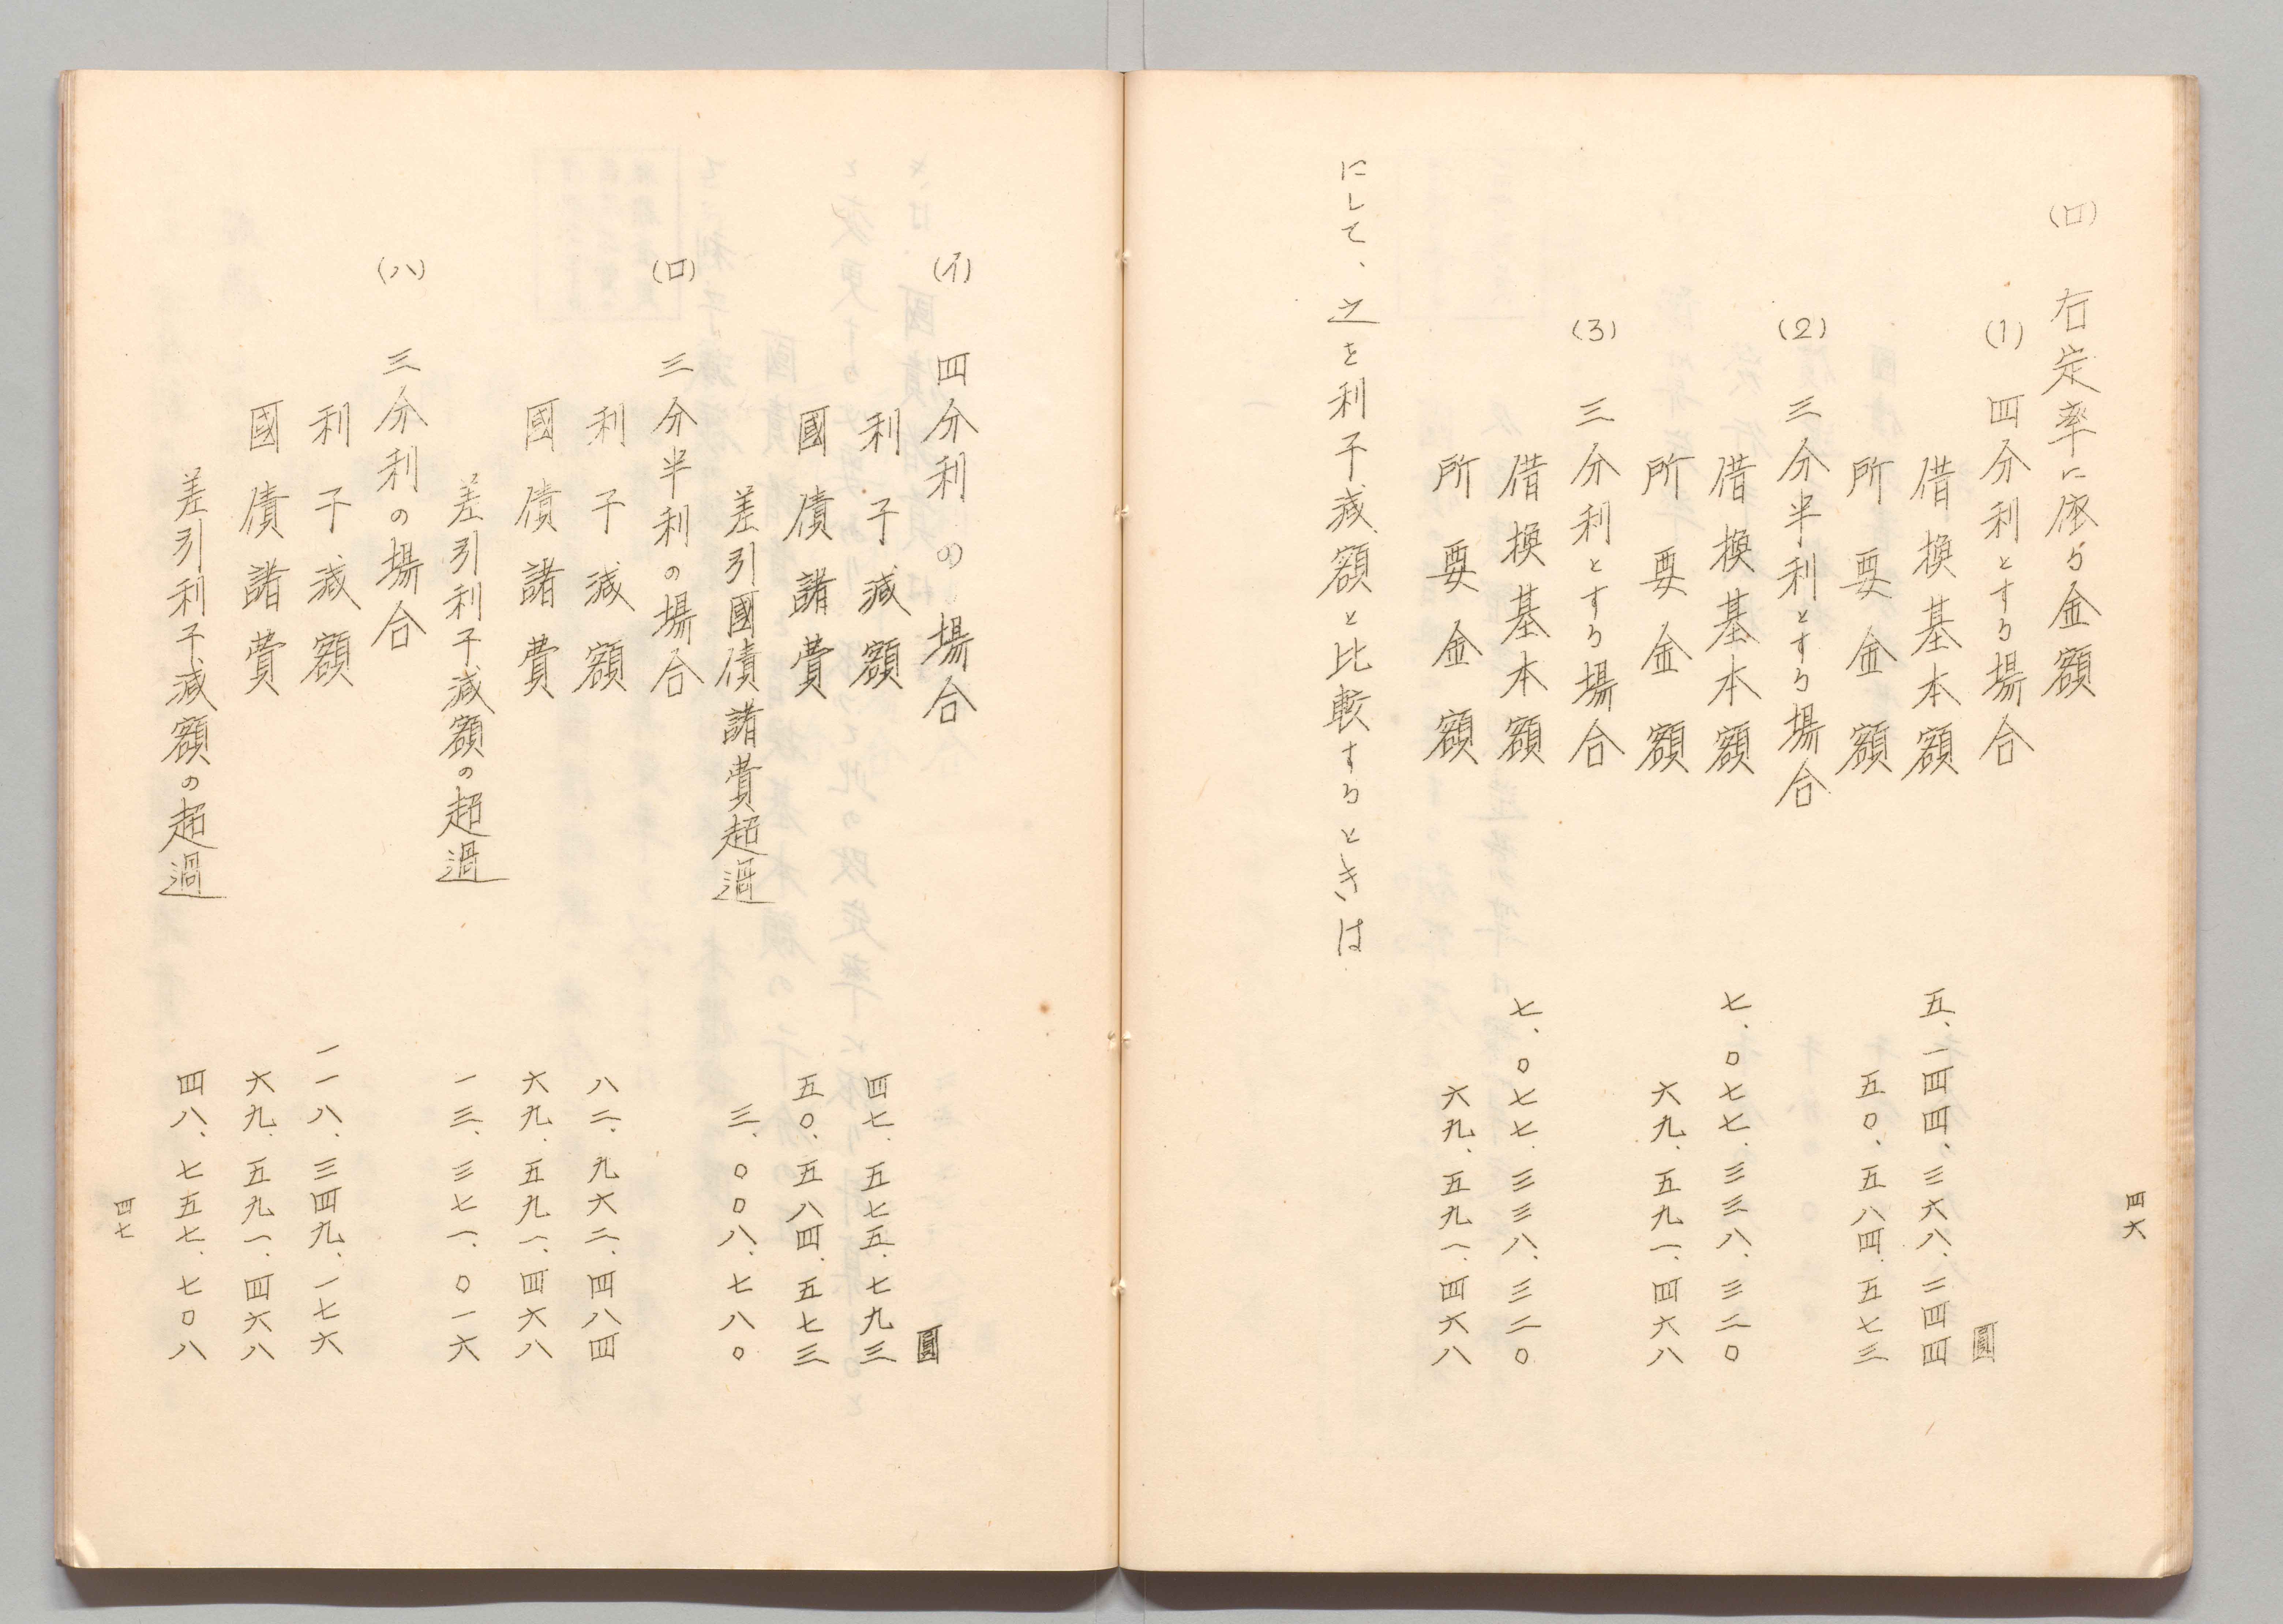 四六
(ロ) 右定率に依る金額
(1) 四分利とする場合
圓
借換基本額 五、一四四、三六八、二四四
所要金額 五〇、五八四、五七三
(2) 三分半利とする場合
借換基本額 七、〇七七、三三八、三二〇
所要金額 六九、五九一、四六八
(3) 三分利とする場合
借換基本額 七、〇七七、三三八、三二〇
所要金額 六九、五九一、四六八
にして、之を利子減額と比較するときは
(イ) 四分利の場合
圓
利子減額 四七、五七五、七九三
國債諸費 五〇、五八四、五七三
差引國債諸費超過 三、〇〇八、七八〇
(ロ) 三分半利の場合
利子減額 八二、九六二、四八四
國債諸費 六九、五九一、四六八
差引利子減額の超過 一三、三七一、〇一六
(ハ) 三分利の場合
利子減額 一一八、三四九、一七六
國債諸費 六九、五九一、四六八
差引利子減額の超過 四八、七五七、七〇八
四七